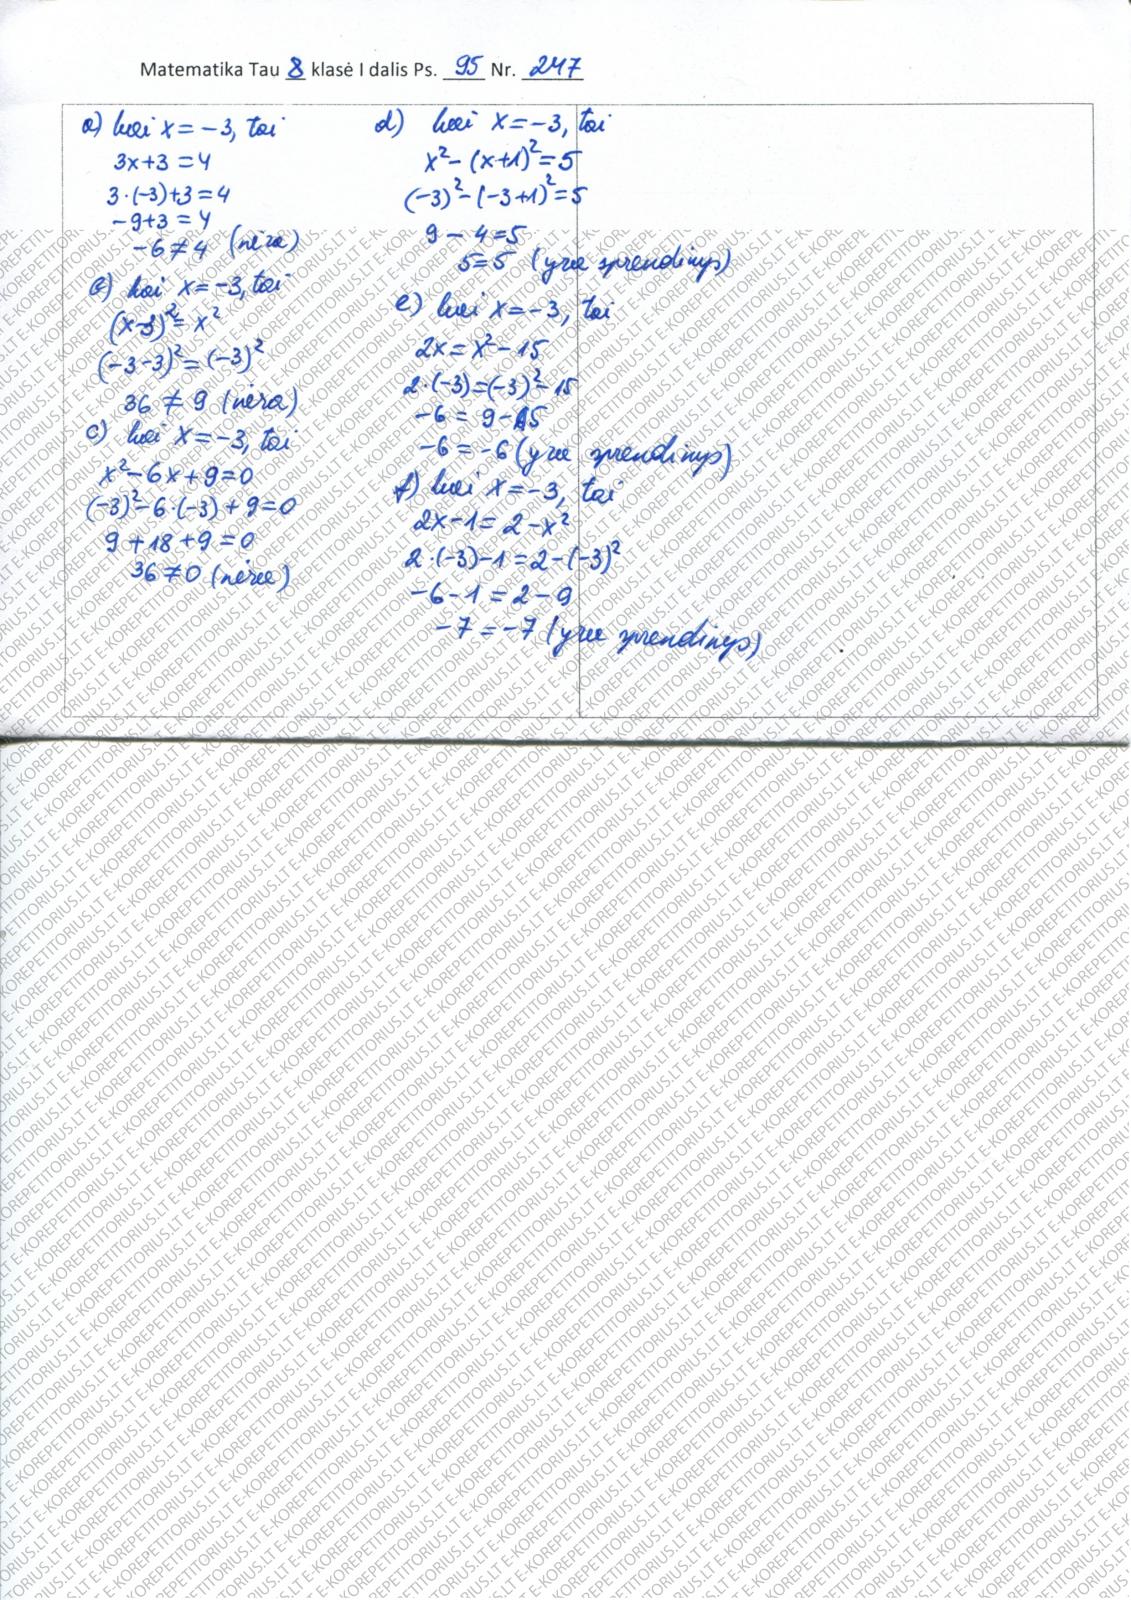 Matematika Tau 8 klasė I dalis Ps. 95 Nr. 247
a) kai x = -3, tai
3x+3 = 4
3·(-3)+3 = 4
-9+3 = 4
-6 ≠ 4 (nėra)
b) kai x = -3, tai
(x-3)² = x²
(-3-3)² = (-3)²
36 ≠ 9 (nėra)
c) kai x = -3, tai
x²-6x+9=0
(-3)²-6·(-3)+9=0
9+18+9=0
36≠0 (nėra)
d) kai x = -3, tai
x²-(x+1)²=5
(-3)²-(-3+1)²=5
9-4=5
5=5 (yra sprendinys)
e) kai x = -3, tai
2x = x²-15
2·(-3)=(-3)²-15
-6 = 9-15
-6 = -6 (yra sprendinys)
f) kai x = -3, tai
2x-1 = 2-x²
2·(-3)-1 = 2-(-3)²
-6-1 = 2-9
-7 = -7 (yra sprendinys)
E-KOREPETITORIUS.LT